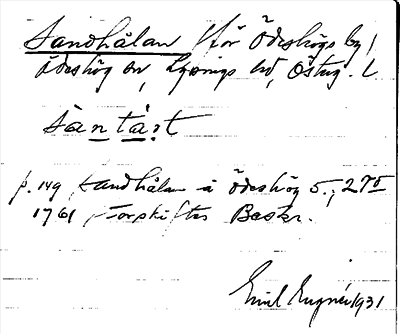 Sandhålan (för Ödeshögs by)
Ödeshög sn, Lysings hd, Östug. L
sàntà̩t
p. 149 Sandhålan å Ödeshög 5.,
1761 Storskiftes Beskr.
Emil Eugnér 1931